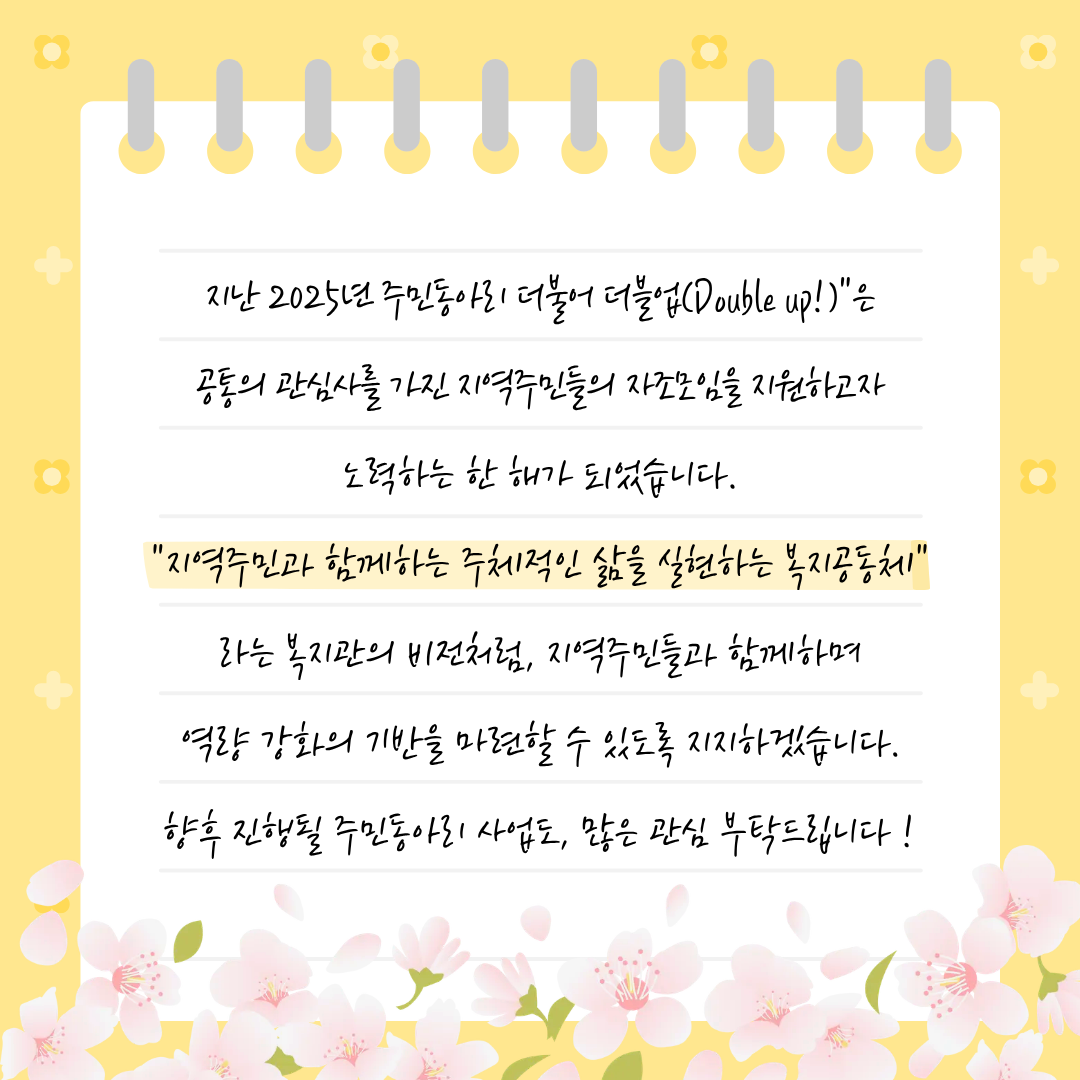 지난 2025년 주민동아리 더불어 더블업(Double up!)"은
공통의 관심사를 가진 지역주민들의 자조모임을 지원하고자
노력하는 한 해가 되었습니다.
"지역주민과 함께하는 주체적인 삶을 실현하는 복지공동체"
라는 복지관의 비전처럼, 지역주민들과 함께하며
역량 강화의 기반을 마련할 수 있도록 지지하겠습니다.
향후 진행될 주민동아리 사업도, 많은 관심 부탁드립니다!